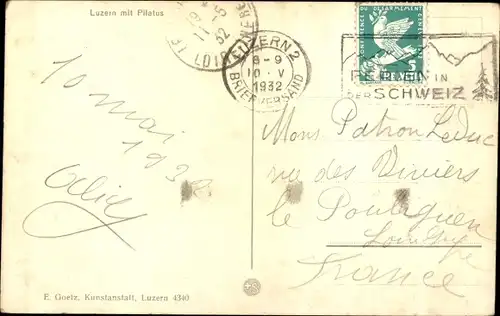 Luzern mit Pilatus
11-5
32
LOIR
CONFERENCE DU DESARMEMENT
5
HELVETIA
LUZERN 2
8-9
10. V
1932
BRIEFVERSAND
FERIEN IN
DER SCHWEIZ
10 mai
1932
Mons Patron Leduc
rue des Viviers
le Pouliguen
Loire Infre
France
E. Goetz, Kunstanstalt, Luzern 4340